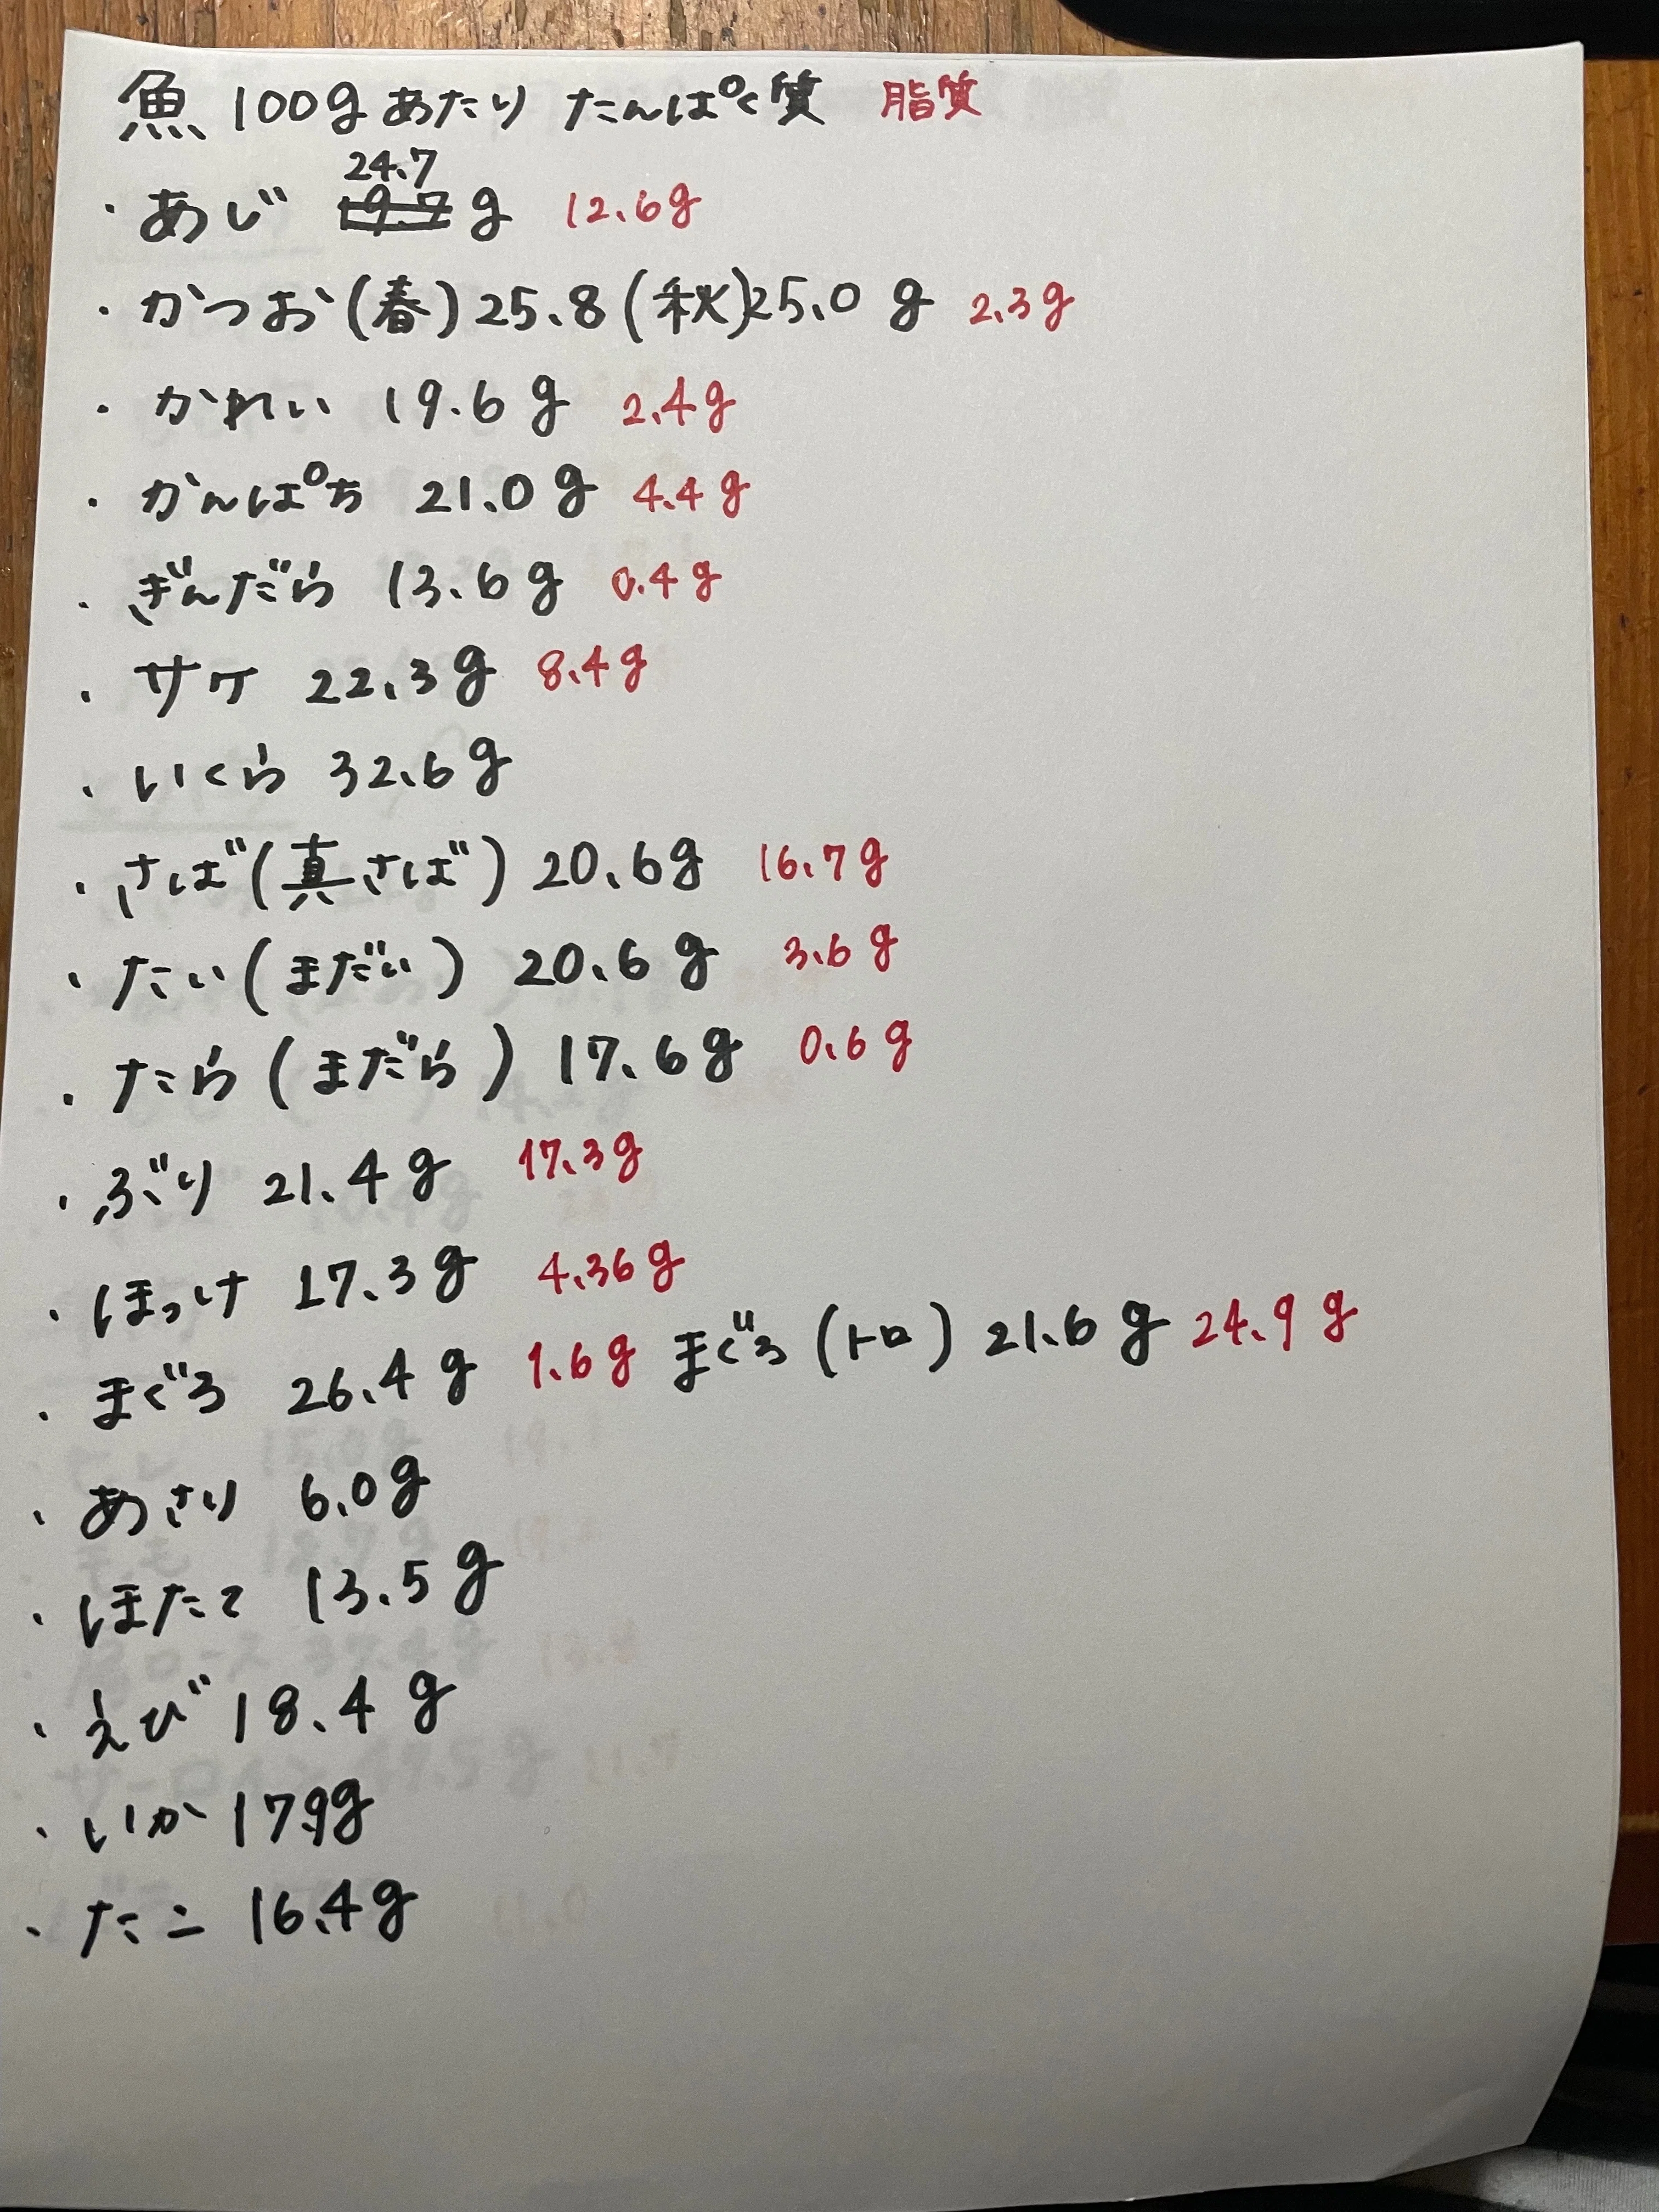 魚 100gあたり たんぱく質 脂質
24.7
・あじ 19.7 g 12.6g
・かつお(春)25.8(秋)25.0 g 2.3g
・かれい 19.6g 2.4g
・かんぱち 21.0g 4.4g
・ぎんだら 13.6g 0.4g
・サケ 22.3g 8.4g
・いくら 32.6g
・さば(真さば) 20.6g 16.7g
・たい(まだい) 20.6g 3.6g
・たら(まだら) 17.6g 0.6g
・ぶり 21.4g 17.3g
・ほっけ 17.3g 4.36g
・まぐろ 26.4g 1.6g まぐろ(トロ) 21.6g 24.9g
・あさり 6.0g
・ほたて 13.5g
・えび 18.4g
・いか 17.9g
・たこ 16.4g